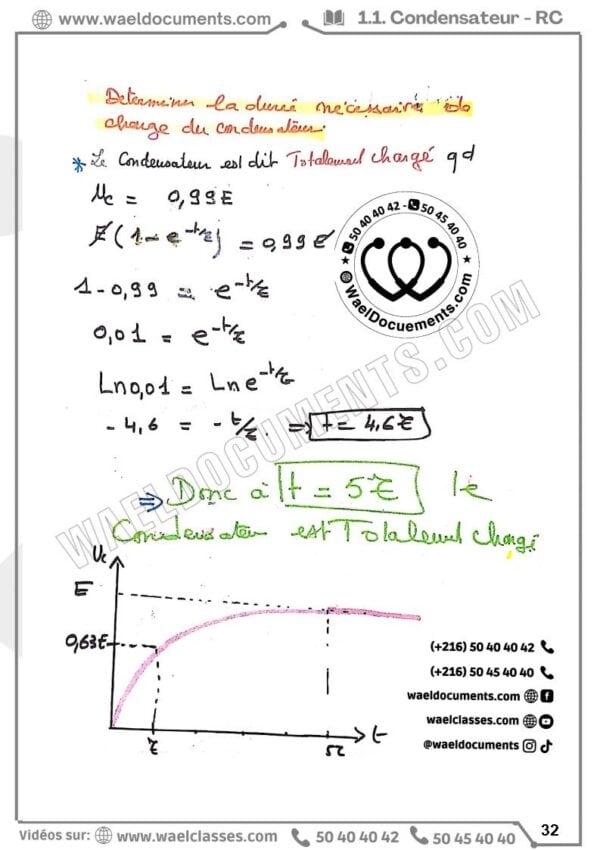 www.waeldocuments.com
1.1. Condensateur - RC
Determiner la durée nécessaire de
charge du condensateur.
* Le Condensateur est dit Totalement chargé qd
Uc = 0,99E
E(1-e^-t/τ) = 0,99E
1-0,99 = e^-t/τ
0,01 = e^-t/τ
Ln0,01 = Lne^-t/τ
-4,6 = -t/τ. => t = 4,6τ
=> Donc à t = 5τ le
Condensateur est Totalement chargé
50 40 40 42 - 50 45 40 40
WaelDocuements.com
WAELDOCUMENTS.COM
Uc
E
0,63E
τ
5τ
t
(+216) 50 40 40 42
(+216) 50 45 40 40
waeldocuments.com
waelclasses.com
@waeldocuments
32
Vidéos sur: www.waelclasses.com 50 40 40 42 50 45 40 40